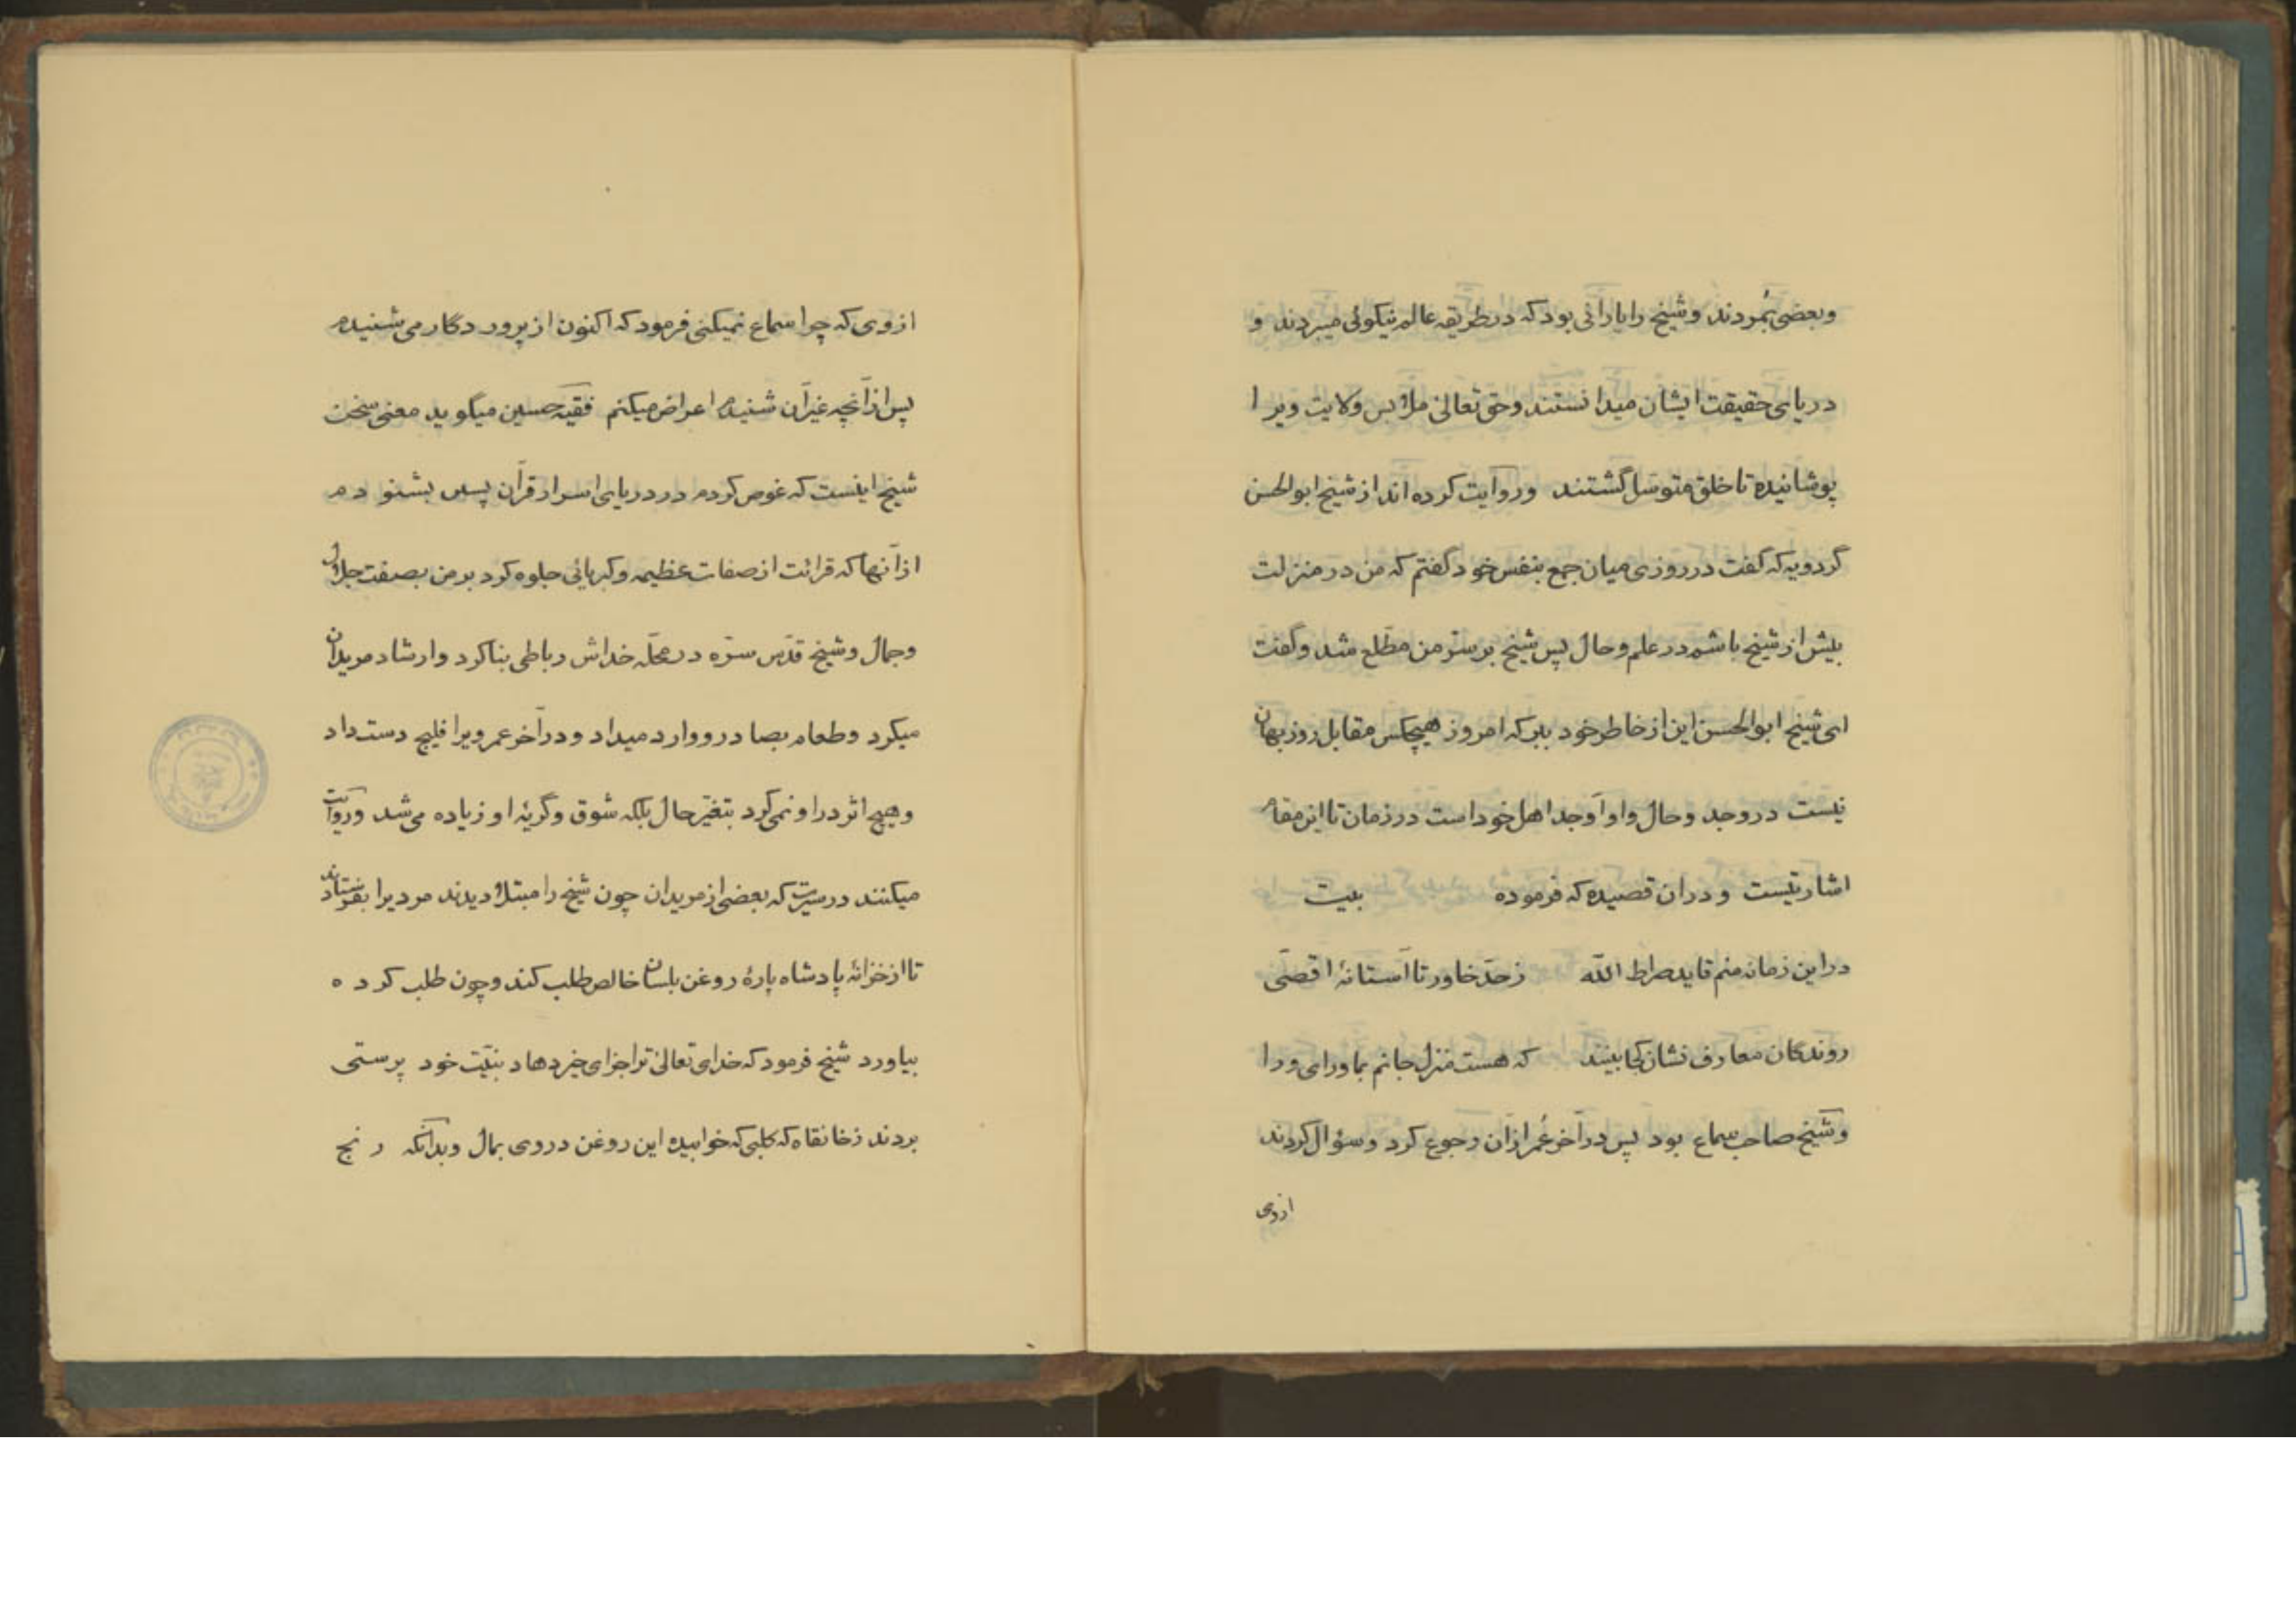 وبعضی بمُردند وشیخ را یارانی بود که در طریقه عالم نیکوئی میبردند و
دریای حقیقت ایشان میدانستند وحق تعالیٰ ملابس ولایت ویرا
پوشانیده تا خلق متوسّل گشتند وروایت کرده اند از شیخ ابوالحسن
گردویه که گفت در روزی میان جمع بنفس خود گفتم که من در منزلت
بیش از شیخ باشم در علم وحال پس شیخ بر سرّ من مطّلع شد وگفت
ای شیخ ابوالحسن این از خاطر خود ببر که امروز هیچکس مقابل روزبهان
نیست در وجد وحال واو اَوجد اهل خود است در زمان تا این مقام
اشارتیست ودران قصیده که فرموده بیت
دراین زمانه منم قاید صراط الله زحدّ خاور تا آستانهٔ اقصی
روندگان معارف نشان کجا بینند که هست منزل جانم بماورای ورا
وشیخ صاحب سماع بود پس در آخر عُمر ازان رجوع کرد وسؤال کردند
ازوی
ازوی که چرا سماع نمیکنی فرمود که اکنون از پروردگار می شنیدم
پس ازآنچه غیرآن شنیدم اعراض میکنم فقیه حسین میگوید معنی سخن
شیخ اینست که غوص کردم در دریای اسرار قرآن پس بشنودم
ازآنها که قرائت از صفات عظیمه وکبریائی جلوه کرد بر من بصفت جلال
وجمال وشیخ قدّس سرّه در محلّه خداش رباطی بنا کرد وارشاد مریدان
میکرد وطعام بصادر ووارد میداد ودر آخر عمر ویرا فلیج دست داد
وهیچ اثر در او نمی کرد بتغیّر حال بلکه شوق وگریهٔ او زیاده می شد وروایت
میکنند در سیرت که بعضی از مریدان چون شیخ را مبتلا دیدند مردیرا بفرستادند
تا از خزانهٔ پادشاه پارهٔ روغن بلسان خالص طلب کند وچون طلب کرده
بیاورد شیخ فرمود که خدای تعالیٰ ترا جزای خیر دهاد بنیّت خود پرستی
بردند زخانقاه که کلبی که خوابیده این روغن در وی بمال وبدآنکه رنج